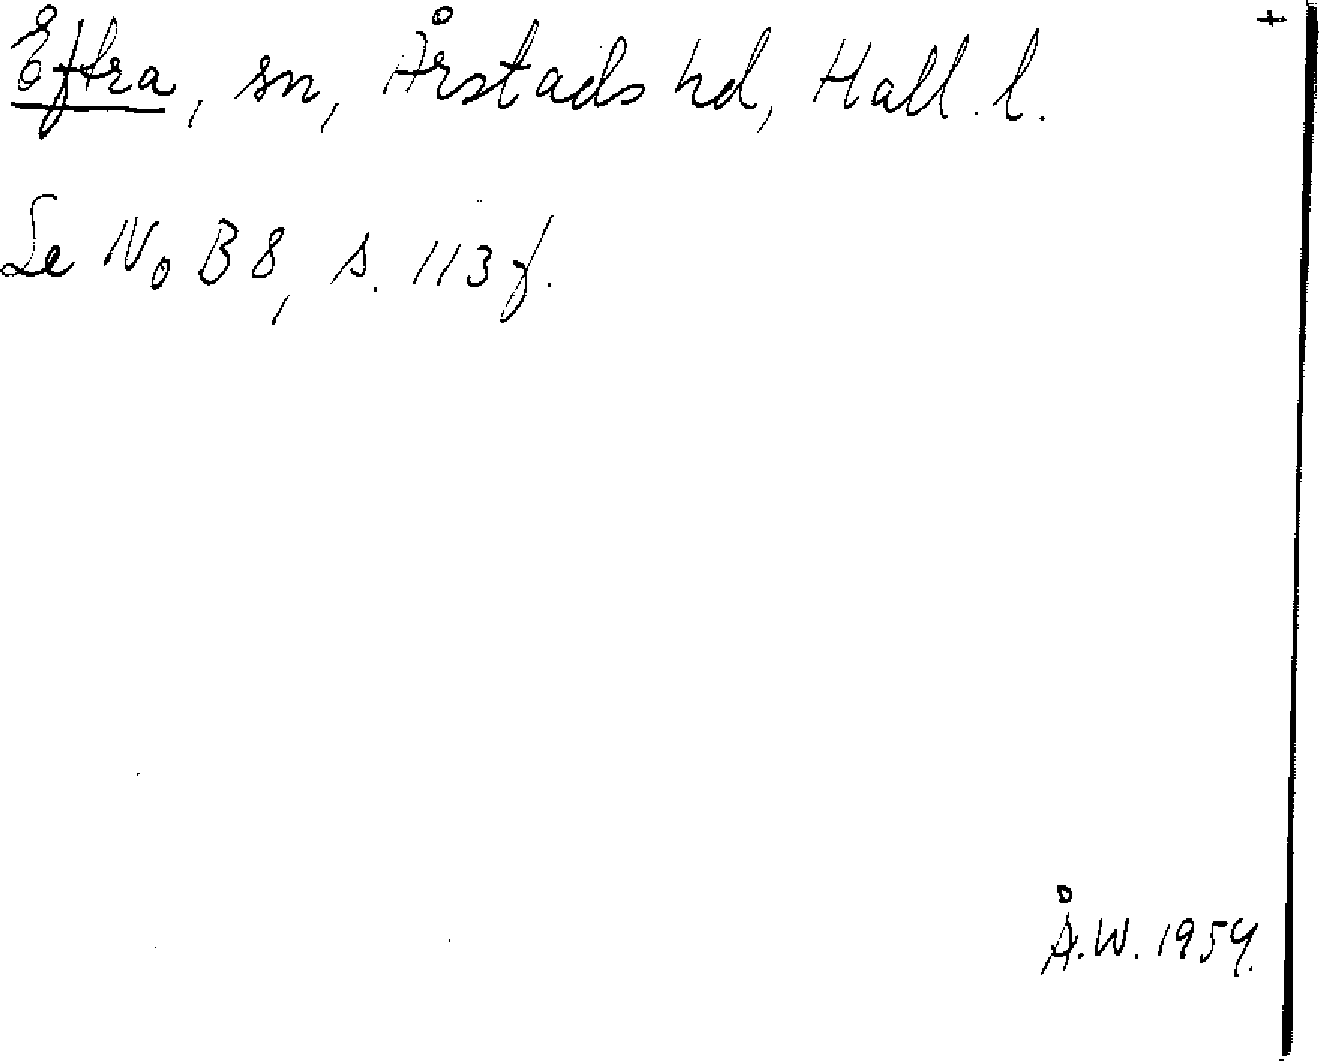 +
Eftra, sn, Årstads hd, Hall. l.
Se NoB 8, s. 113 f.
Å.W. 1954.